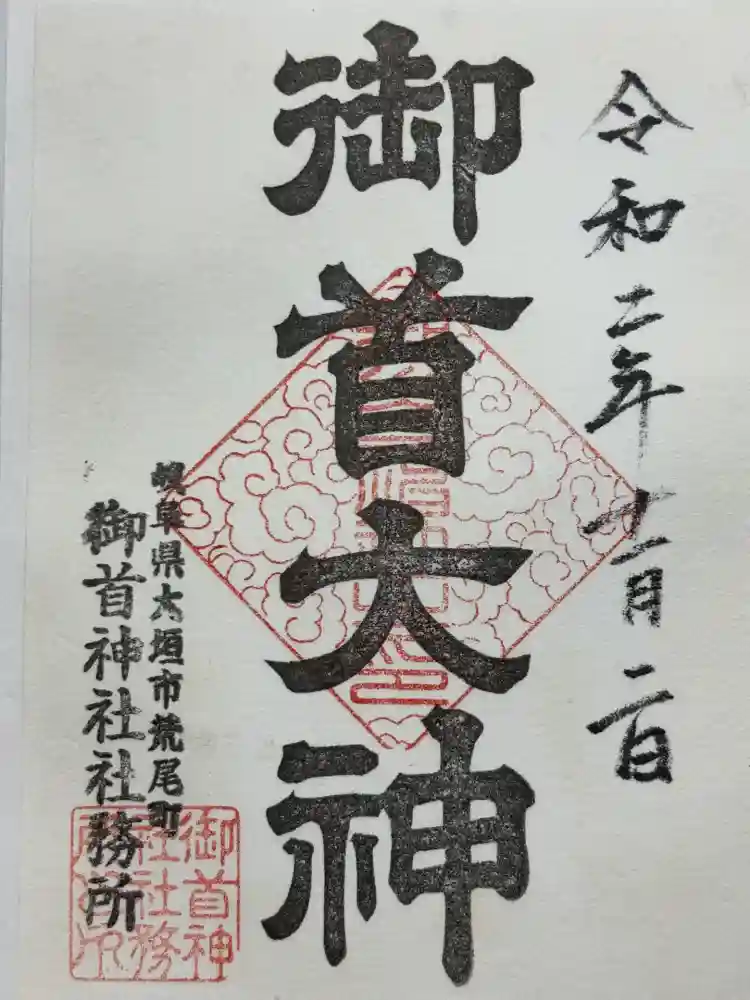 令和二年十一月二日
御首大神
岐阜県大垣市荒尾町
御首神社社務所
御首神
社社務